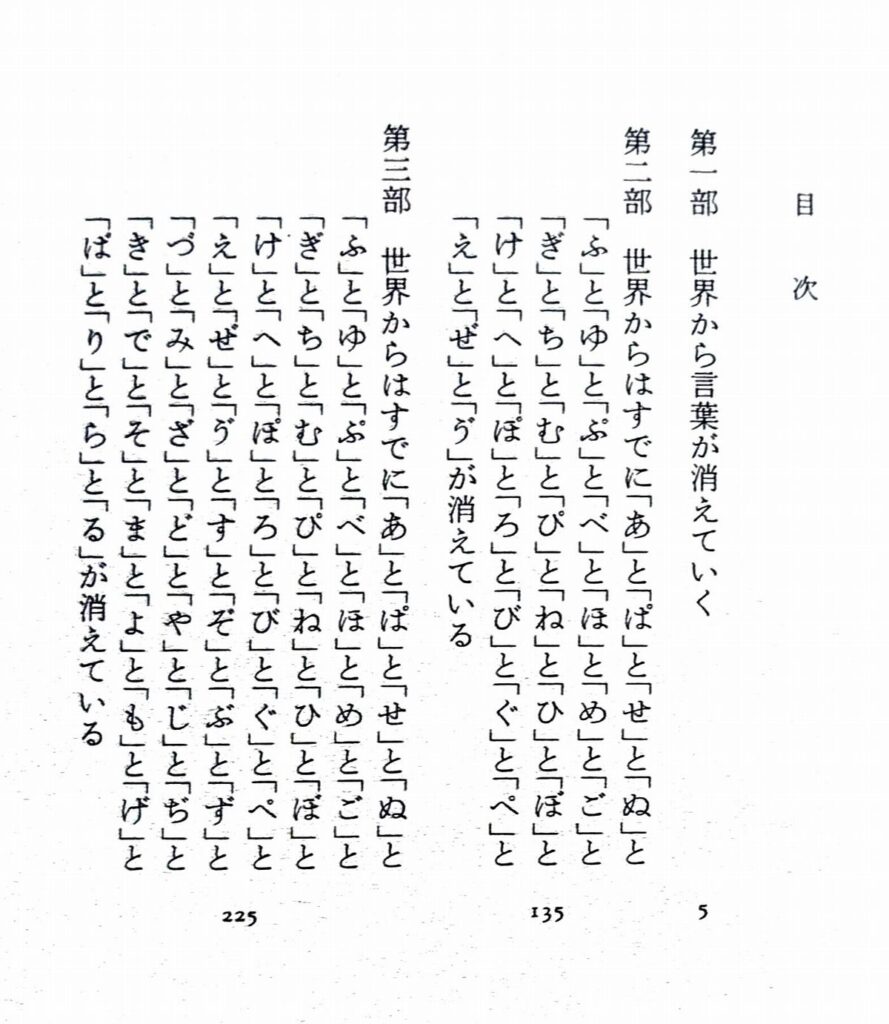 目次
第一部 世界から言葉が消えていく
5
第二部 世界からはすでに「あ」と「ぱ」と「せ」と「ぬ」と
「ふ」と「ゆ」と「ぷ」と「べ」と「ほ」と「め」と「ご」と
「ぎ」と「ち」と「む」と「ぴ」と「ね」と「ひ」と「ぼ」と
「け」と「へ」と「ぽ」と「ろ」と「び」と「ぐ」と「ぺ」と
「え」と「ぜ」と「ゔ」が消えている
135
第三部 世界からはすでに「あ」と「ぱ」と「せ」と「ぬ」と
「ふ」と「ゆ」と「ぷ」と「べ」と「ほ」と「め」と「ご」と
「ぎ」と「ち」と「む」と「ぴ」と「ね」と「ひ」と「ぼ」と
「け」と「へ」と「ぽ」と「ろ」と「び」と「ぐ」と「ぺ」と
「え」と「ぜ」と「ゔ」と「す」と「ぞ」と「ぶ」と「ず」と
「づ」と「み」と「ざ」と「ど」と「や」と「じ」と「ぢ」と
「き」と「で」と「そ」と「ま」と「よ」と「も」と「げ」と
「ば」と「り」と「ら」と「る」が消えている
225